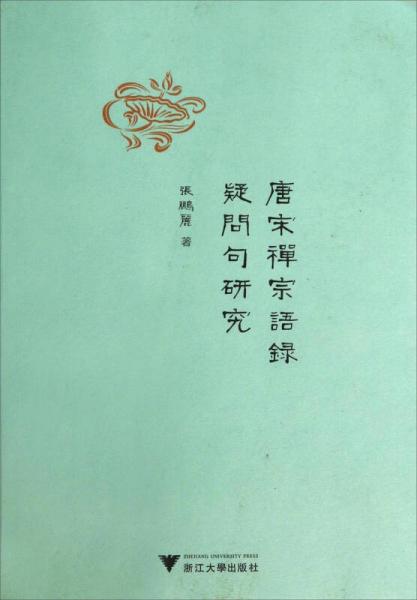 唐宋禪宗語録
疑問句研究
張鵬麗 著
ZHEJIANG UNIVERSITY PRESS
浙江大學出版社